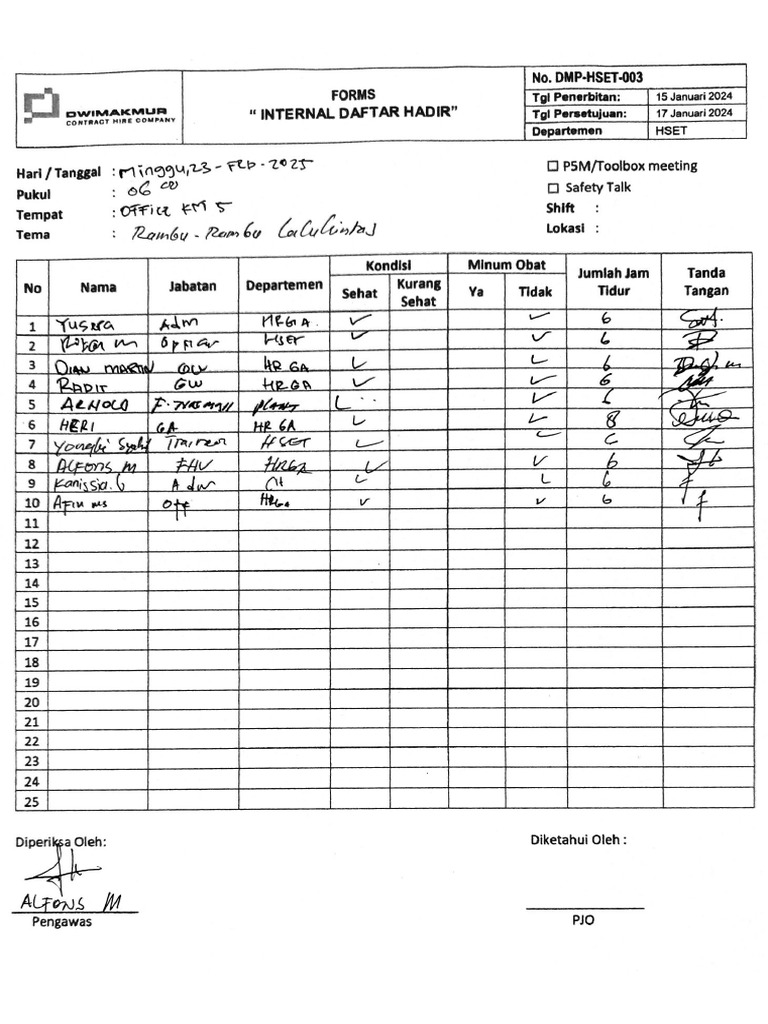 DWIMAKMUR
CONTRACT HIRE COMPANY
FORMS
“ INTERNAL DAFTAR HADIR”
No. DMP-HSET-003
Tgl Penerbitan: 15 Januari 2024
Tgl Persetujuan: 17 Januari 2024
Departemen HSET
Hari / Tanggal : Minggu, 23 - Feb - 2025
Pukul : 06 00
Tempat : OFFICE KM 5
Tema : Rambu - Rambu Lalulintas
P5M/Toolbox meeting
Safety Talk
Shift :
Lokasi :
No Nama Jabatan Departemen Kondisi Minum Obat Jumlah Jam Tidur Tanda Tangan
Sehat Kurang Sehat Ya Tidak
1 Yusera Adm HRGA. ✓ ✓ 6
2 M HSET ✓ ✓ 6
3 DIAN MARTIN GW HR GA ✓ ✓ 6
4 RADIT GW HRGA ✓ ✓ 6
5 ARNOLD PLANT ✓ ✓ 6
6 HERI GA HR GA ✓ ✓ 8
7 Trainer HSET ✓ ✓ 6
8 ALFONS M HRGA ✓ ✓ 6
9 Kanissia. G Adm ✓ ✓ 6
10 AFIN MS Off HRGA ✓ ✓ 6
11
12
13
14
15
16
17
18
19
20
21
22
23
24
25
Diperiksa Oleh:
Diketahui Oleh :
ALFONS M
Pengawas
PJO